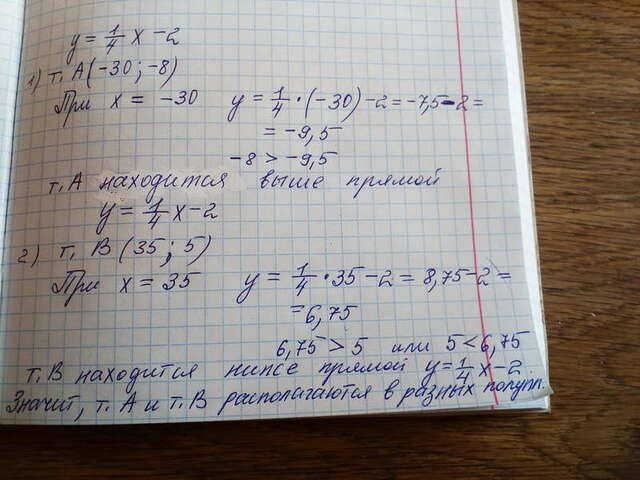 y = 1/4 x - 2
1) т. A(-30; -8)
При x = -30 y = 1/4 · (-30) - 2 = -7,5 - 2 =
= -9,5
-8 > -9,5
т. A находится выше прямой
y = 1/4 x - 2
2) т. B (35; 5)
При x = 35 y = 1/4 · 35 - 2 = 8,75 - 2 =
= 6,75
6,75 > 5 или 5 < 6,75
т. B находится ниже прямой y = 1/4 x - 2.
Значит, т. A и т. B располагаются в разных полупл.